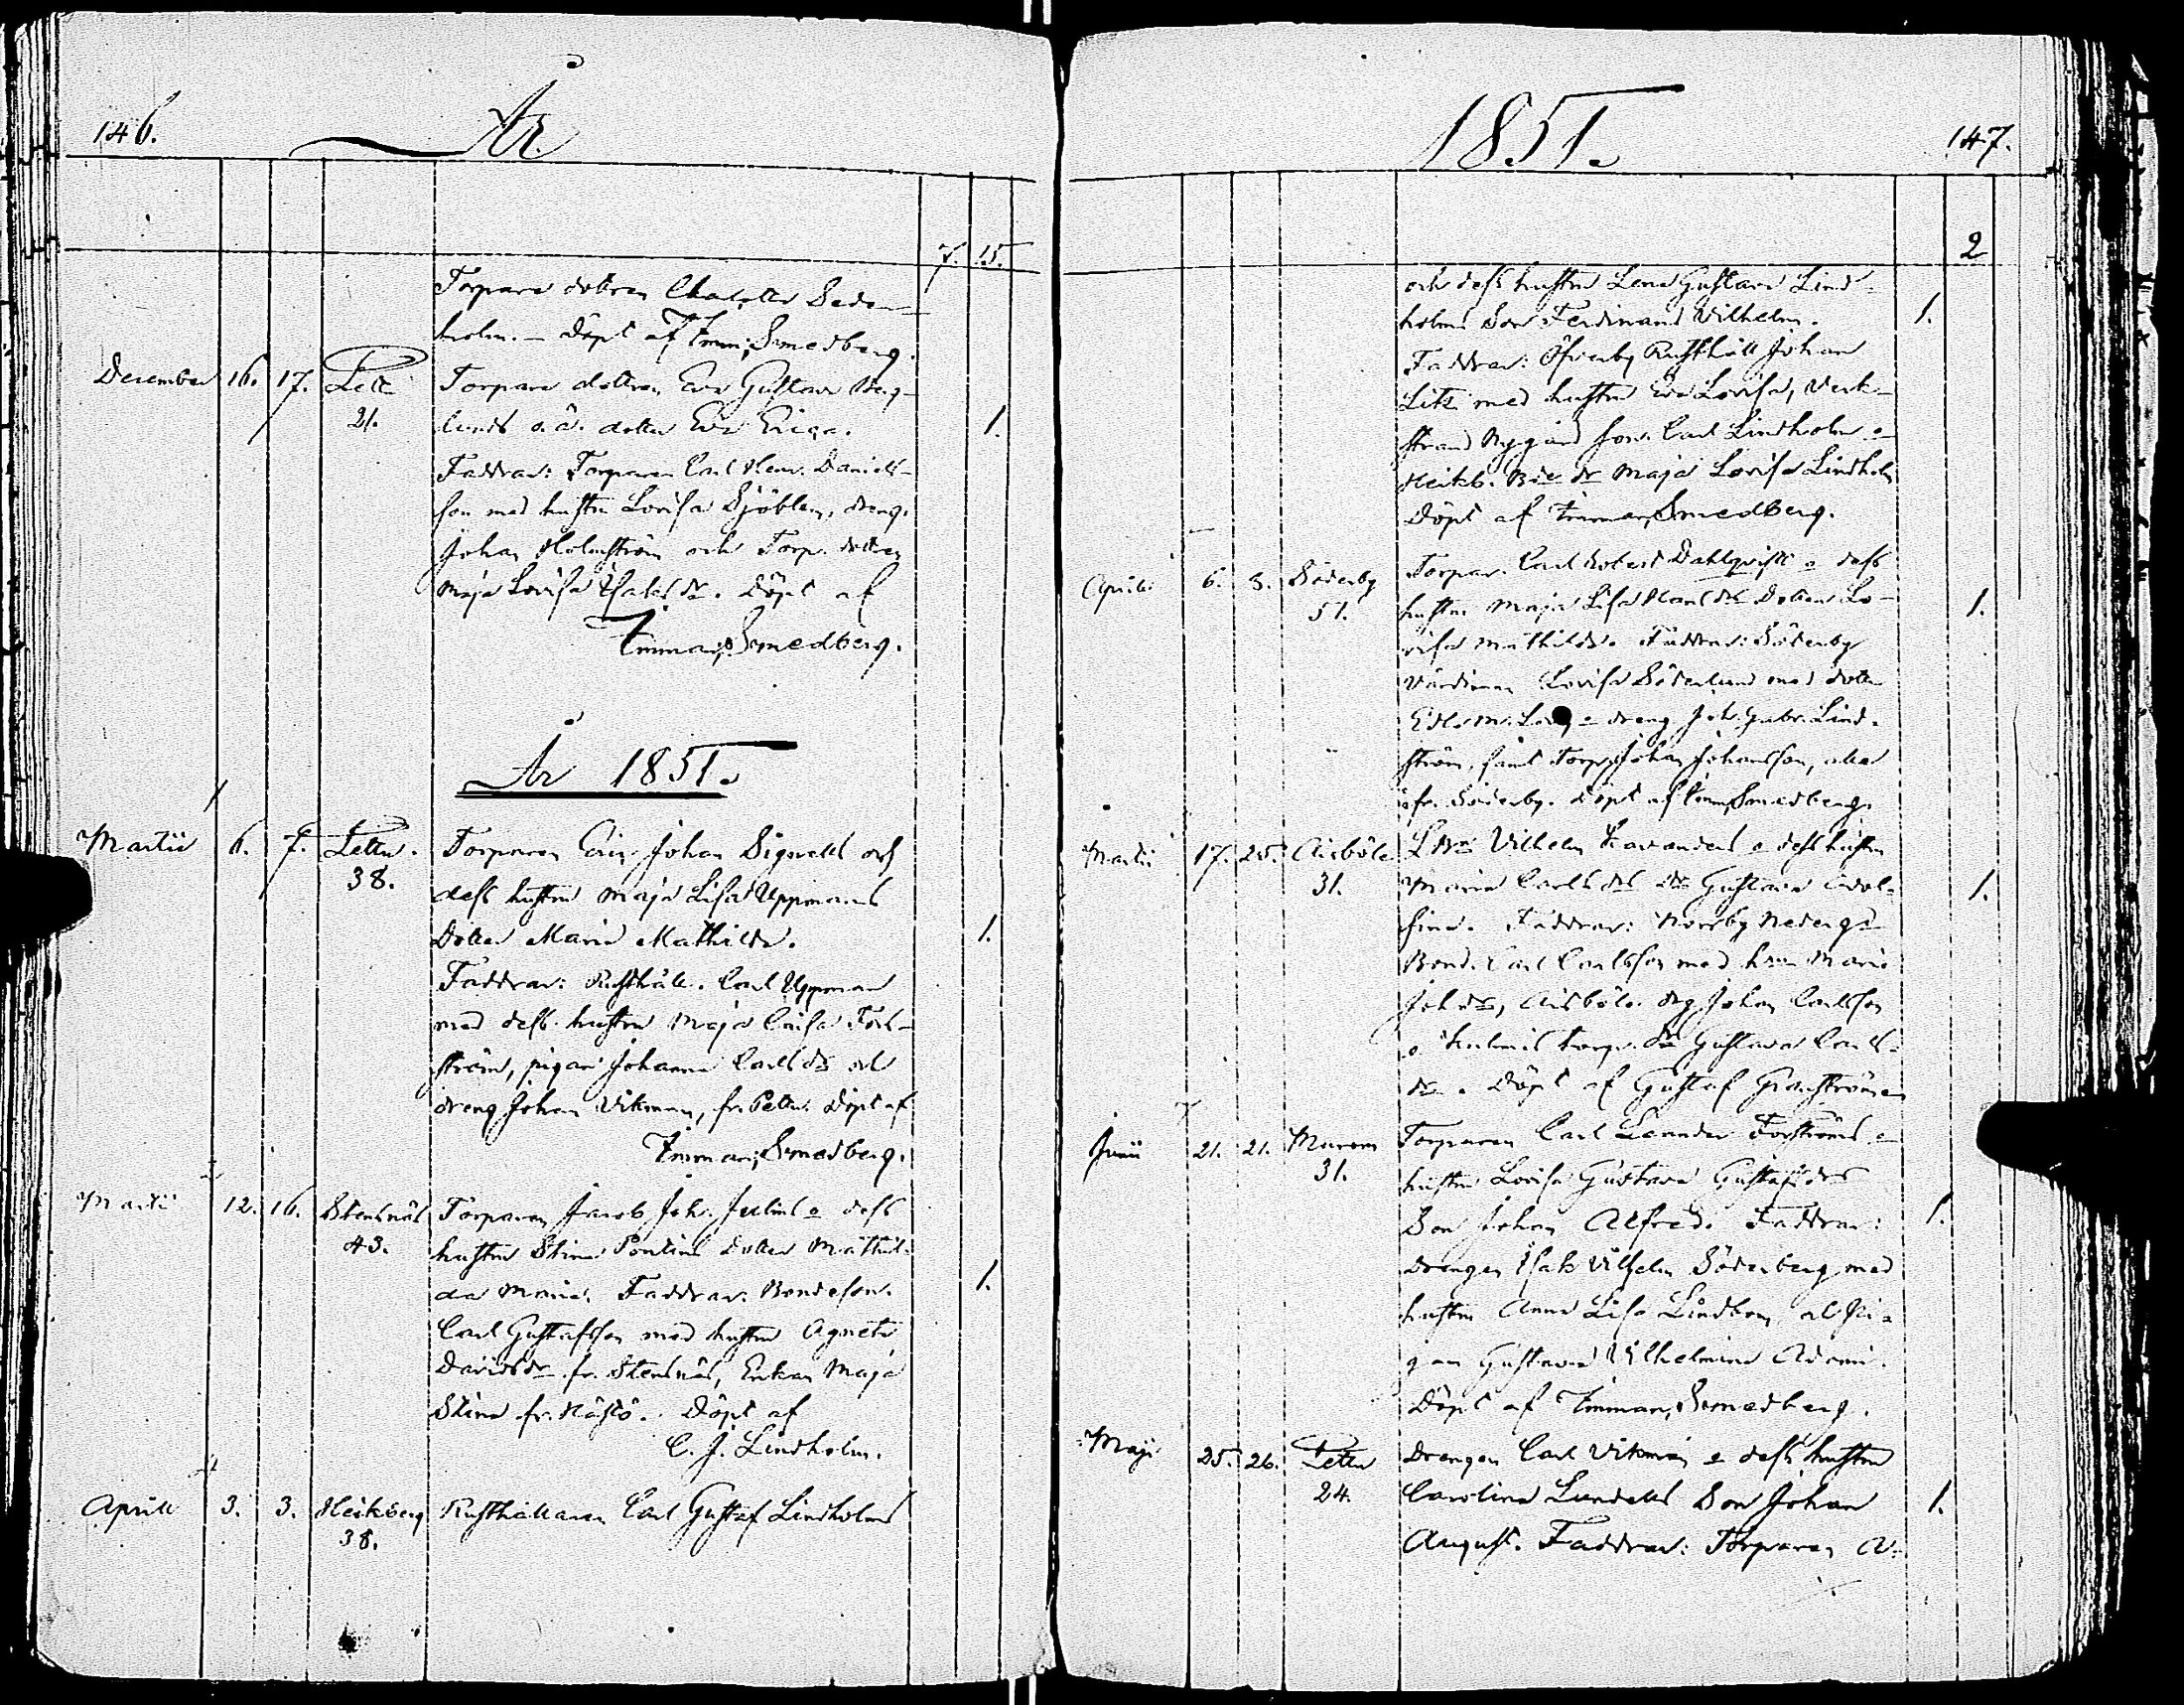 146.
År
7. 15.
Torpare dottren Charlotta Seder-
holm. – Döpt af Imman. Smedberg.
December 16. 17. Pett. Torpare dottren Eva Gustava Berg-
21. lunds o. ä. dotter Eva Erica. 1.
Faddrar: Torparen Carl Henr. Daniels-
son med hustru Lovisa Sjöblom, dreng.
Johan Holmström och Torp. dottren
Maja Lovisa Isaksdr. Döpt af
Imman. Smedberg.
År 1851.
1
Martii 6. 7. Pettu. Torparen Johan Signells och
38. dess hustru Maja Lisa Uppmans
Dotter Maria Mathilda. 1.
Faddrar: Rusthåll. Carl Uppman
med dess hustru Maja Caisa Fors-
ström, pigan Johanna Carlsdr och
dreng Johan Vikman, fr. Pettu. Döpt af
Imman. Smedberg.
2
Martii 12. 16. Stensnäs Torparen Jacob Joh. Julins o dess
43. hustru Stina Pontins Dotter Mathil-
da Maria. Faddrar: Bondeson. 1.
Carl Gustafsson med hustru Agneta
Davidsdr fr. Stensnäs, Enkan Maja
Stina fr. Hästö. Döpt af
C. J. Lindholm.
Aprill 3. 3. Heikberg Rusthållaren Carl Gustaf Lindholms
38.
1851.
147.
2
och dess hustru Lena Gustava Lind-
holms Son Ferdinand Vilhelm. 1.
Faddrar: Öfverby Rusthåll Johan
med hustru Eva Lovisa, Verk-
strand Nygård son. Carl Lindholm o
Heikb. dr Maja Lovisa Lindholm
Döpt af Imman. Smedberg.
Aprill 6. 3. Söderby Torpar. Carl Robert Dahlqvist o dess
51. hustru Maja Lisa Dotter Lo- 1.
visa Mathilda. Faddrar: Söderby
Värdinnan Lovisa Söderlund med dotter
dreng Joh. Gabr. Lind-
ström, samt Torp. Johan Johansson, alla
fr. Söderby. Döpt af Imman. Smedberg.
Martii 17. 25. Aisböle Vilhelm o dess hustru
31. Maria Carlsdrs dr Gustava Adol- 1.
fina. Faddrar: Norrby Nedergd
Bond. Carl Carlsson med hru Maria
Johdr, Aisböle. drg Johan Carlsson
o torp. dr Gustava Carls-
dr. Döpt af Gustaf Granström
Junii 21. 21. Murom Torparen Carl Leander Forströms o
31. hustru Lovisa Gustava Gustafsdrs
Son Johan Alfred. Faddrar: 1.
Drengen Isak Vilhelm Söderberg med
hustru Anna Lisa Lindbom, och Pi-
gan Gustava Vilhelmina
Döpt af Imman. Smedberg.
Maji 25. 26. Pettu Drengen Carl Vikman o dess hustru
24. Carolina Lundells Son Johan 1.
August. Faddrar: Torparen A.